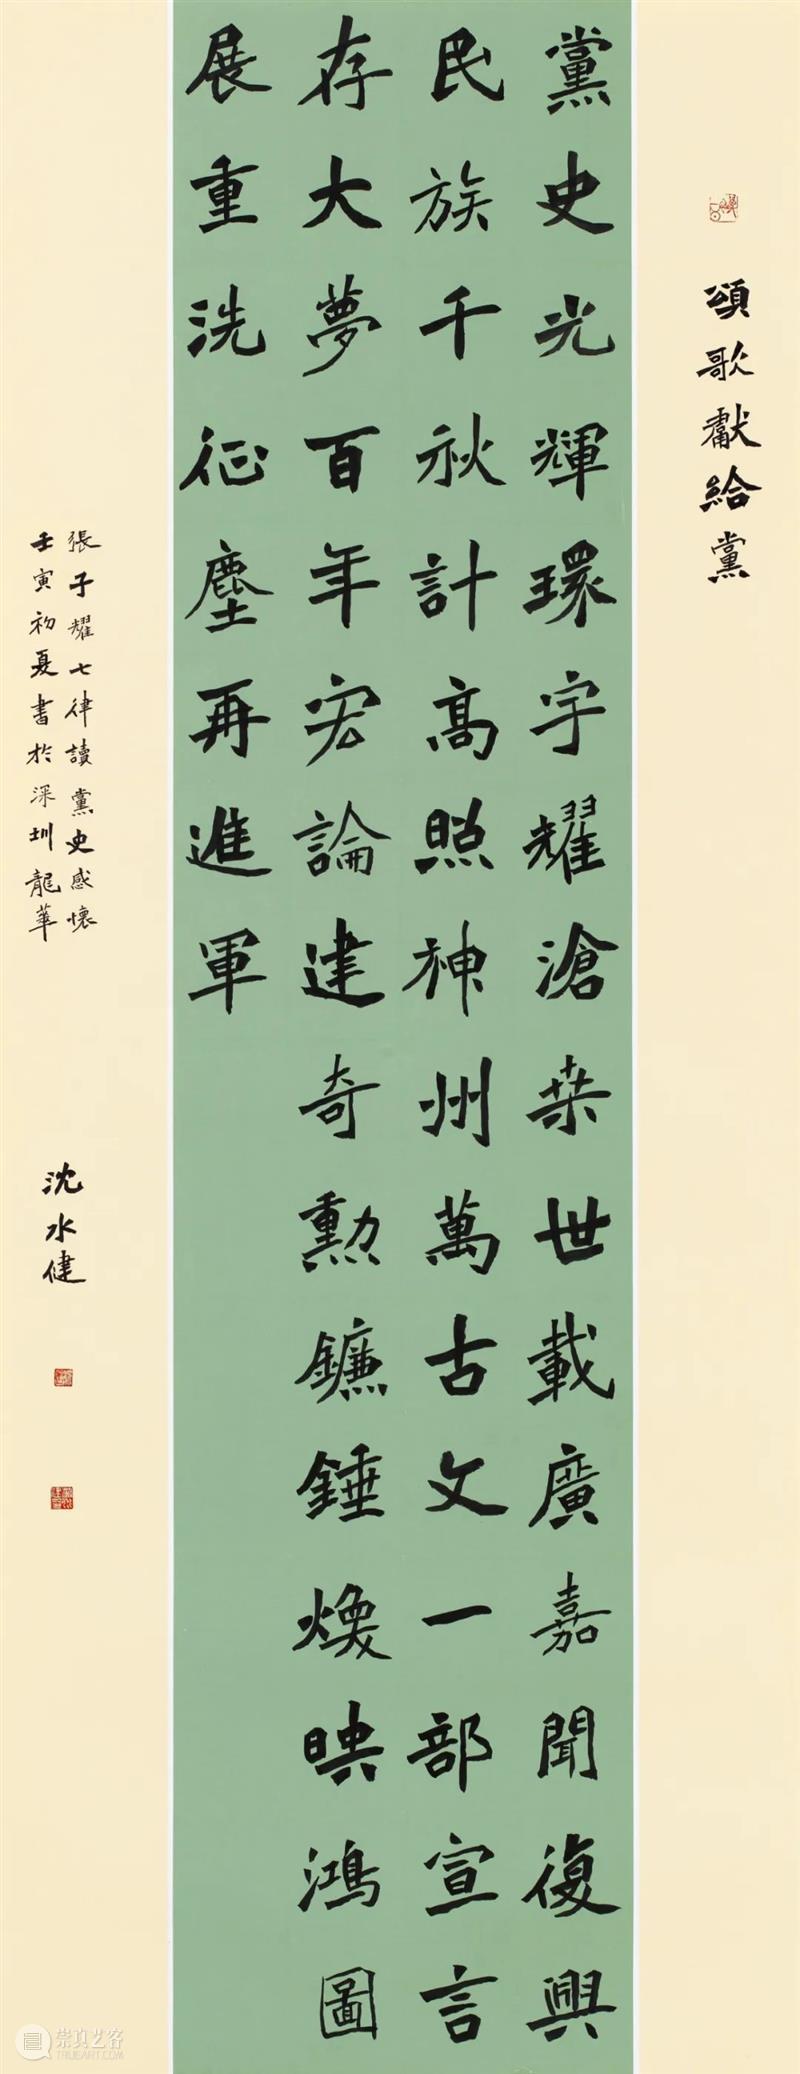 頌歌獻給黨
黨史光輝環宇耀滄桑世載廣嘉聞復興
民族千秋計高照神州萬古文一部宣言
存大夢百年宏論建奇勳鐮錘煥映鴻圖
展重洗征塵再進軍
張子耀七律讀黨史感懷
壬寅初夏書於深圳龍華
沈水健
崇真艺客
TRUEART.COM